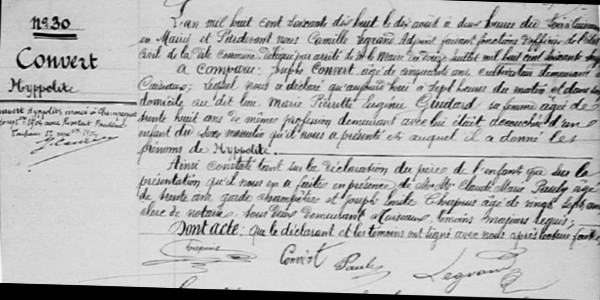 No. 30
Convert
Hyppolite
L'an mil huit cent soixante dix huit le dix août à deux heures du soir
en Mairie et Pardevant nous Camille Legrand Adjoint faisant fonctions d'officier de l'état
civil de la dite commune délégué par arrêté de Mr le Maire en juillet mil huit cent soixante
a comparu: Joseph Convert âgé de cinquante ans, cultivateur demeurant
lequel nous a déclaré qu'aujourd'hui à sept heures du matin et dans son
domicile au dit lieu Marie Pierrette Eugénie Gudard sa femme âgée de
trente huit ans de même profession demeurant avec lui était accouchée d'un
enfant du sexe masculin qu'il nous a présenté et auquel il a donné les
prénoms de Hyppolite.
Ainsi constaté tant sur la déclaration du père de l'enfant que sur la
présentation qu'il nous en a faite en présence de Mr Claude Marie Pauly âgé
de trente ans garde champêtre et Joseph Emile âgé de vingt sept ans
clerc de notaire tous deux demeurant témoins majeurs requis;
Dont acte: que le déclarant et les témoins ont signé avec nous après lecture faite
Convert Pauly Legrand